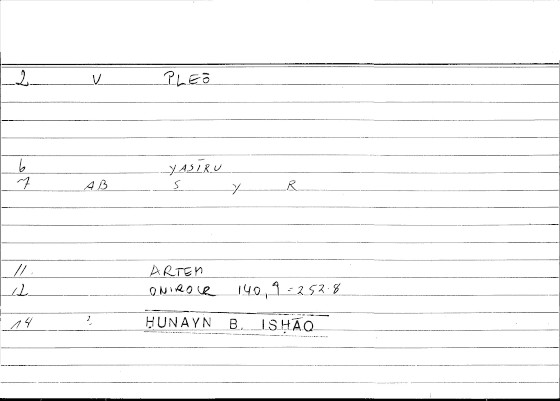 2 V PLEŌ
6 YASĪRU
7 AB S Y R
11. ARTEM
12 ONIROCR 140,9 = 252.8
14 2. ḤUNAYN B. ISḤĀQ